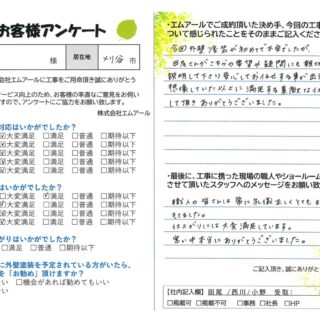 お客様アンケート
様
居在地
刈谷 市
会社エムアールに工事をご用命頂き誠にありがとう
ービス向上のため、お客様の率直なご意見をお伺い
すので、アンケートにご協力をお願い致します。
株式会社エムアール
対応はいかがでしたか?
☑大変満足 □満足 □普通 □期待以下
☑大変満足 □満足 □普通 □期待以下
☑大変満足 □満足 □普通 □期待以下
はいかがでしたか?
☑大変満足 □満足 □普通 □期待以下
☑大変満足 □満足 □普通 □期待以下
☑大変満足 □満足 □普通 □期待以下
がりはいかがでしたか?
足 □満足 □普通 □期待以下
に外壁塗装を予定されている方がいたら、
を「お勧め」頂けますか?
い □機会があれば勧めてもいい
い
・エムアールでご成約頂いた決め手、今回の工事
ついて感じられたことをそのままご記入ください
今回外壁塗装が初めてで不安でしたが
田尾さんがこちらの要望や疑問にも親切
説明して下さり安心してお任せする事が出
想像していた以上に満足する
して頂きありがとうございました。
・最後に、工事に携った現場の職人やショールーム
させて頂いたスタッフへのメッセージをお願い致
職人の皆さんは常に礼儀正しくとても
せました。
仕上がりには大変満足しています。
暑い中本当にありがとうございました。
ご記入頂き、誠にありがと
【社内記入欄】田尾 /西川/小野 受取:
□掲載可 □掲載不可 □事務 □社長 □HP